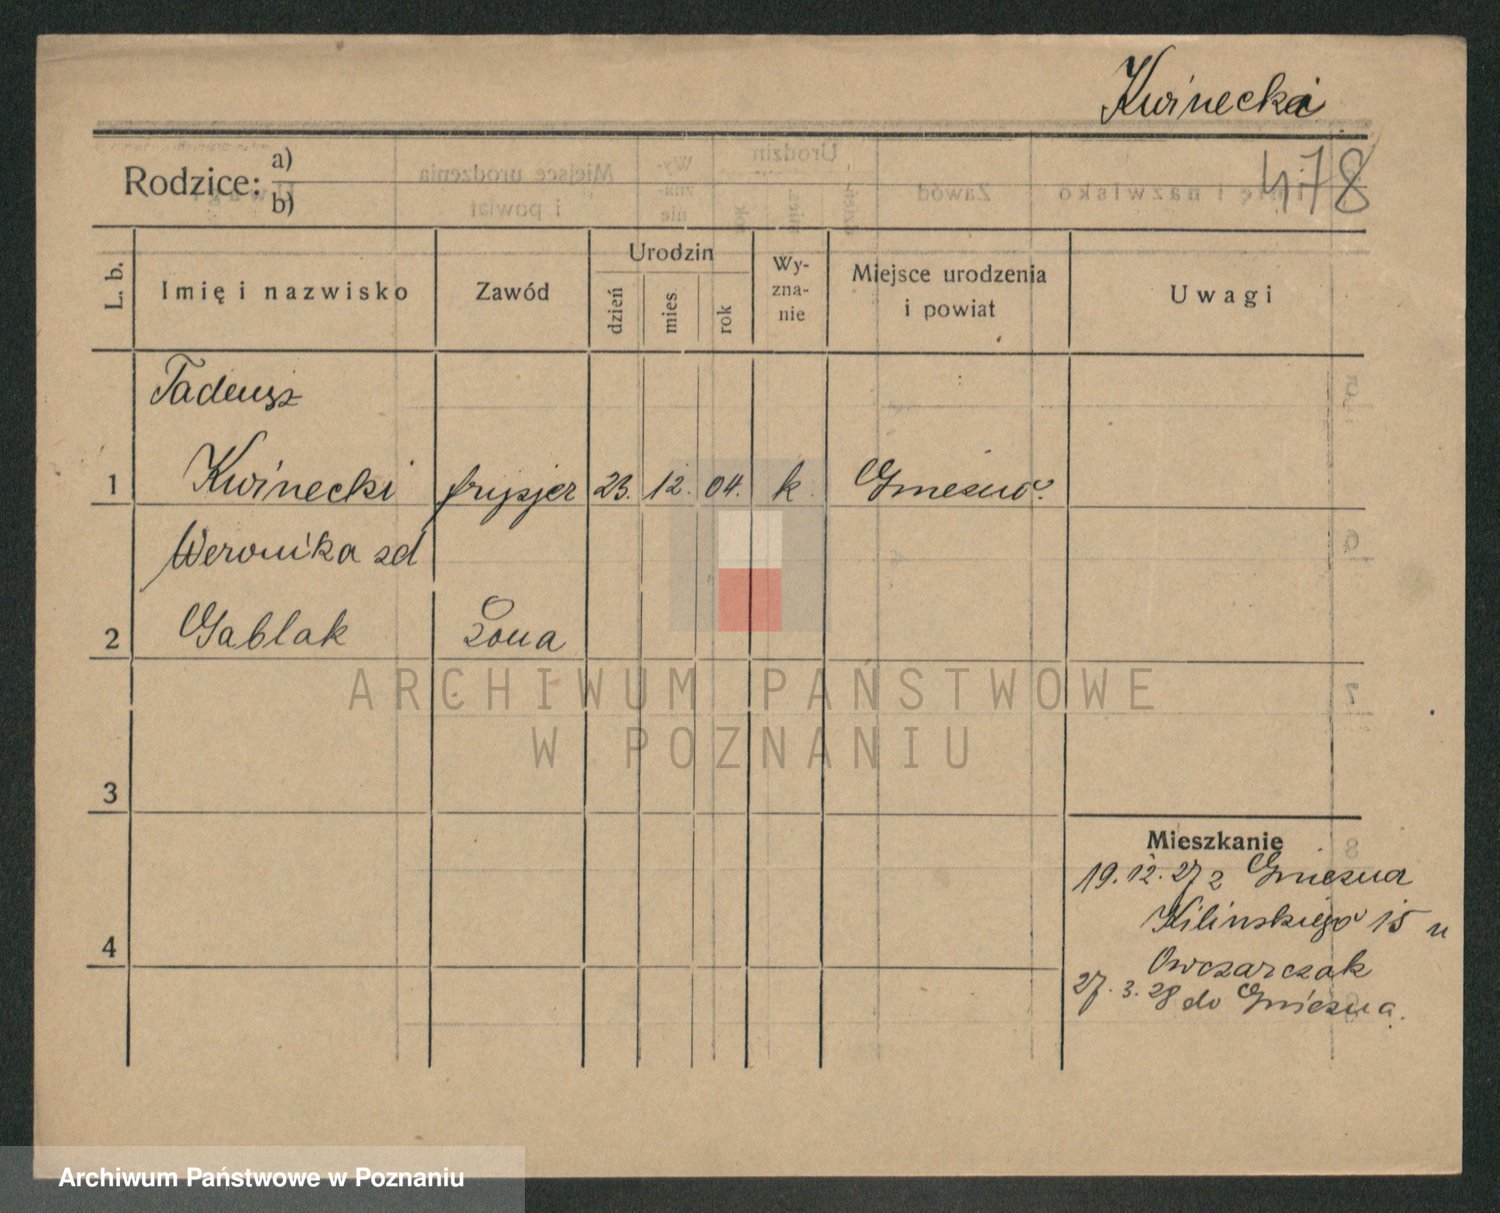 Kwinecki
478
Rodzice: a)
b)
L. b.
Imię i nazwisko
Zawód
Urodzin
dzień
mies
rok
Wy-
zna-
nie
Miejsce urodzenia
i powiat
Uwagi
Tadeusz
1 Kwinecki fryzjer 23. 12. 04. k. Gniezno.
Weronika zd
2 Gablak żona
3
4
Mieszkanie
19.12.27 z Gniezna
Kilińskiego 15 u
Owczarczak
27.3.28 do Gniezna.
ARCHIWUM PAŃSTWOWE
W POZNANIU
Archiwum Państwowe w Poznaniu